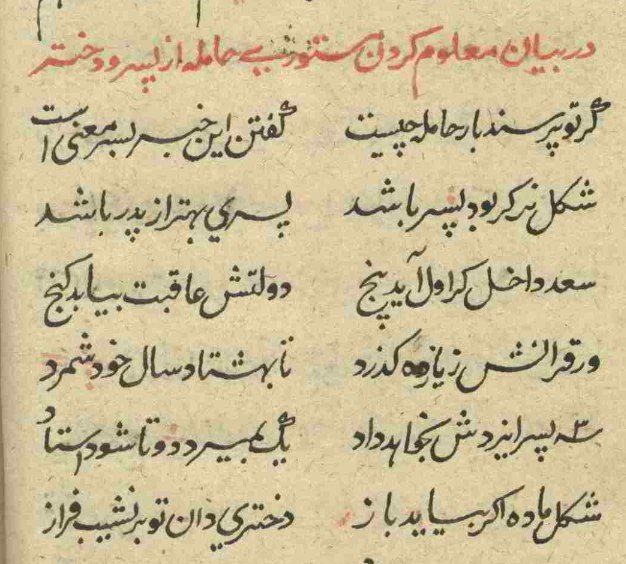 در بیان معلوم کردن مستوری حامله از پسر و دختر
گر تو پرسند بار حامله چیست گفتن این خبر بسر معنی است
شکل نر گر بود پسر باشد پسری بهتر از پدر باشد
سعد داخل کر اول آید پنج دولتش عاقبت بیابد گنج
ور قرانش زیاده گذرد تا بهشتاد سال خود شمرد
سه پسر ایزدش بخواهد داد یک بمیرد دو تا شود استاد
شکل ماده اگر بیاید باز دختری دان تو بر نشیب فراز